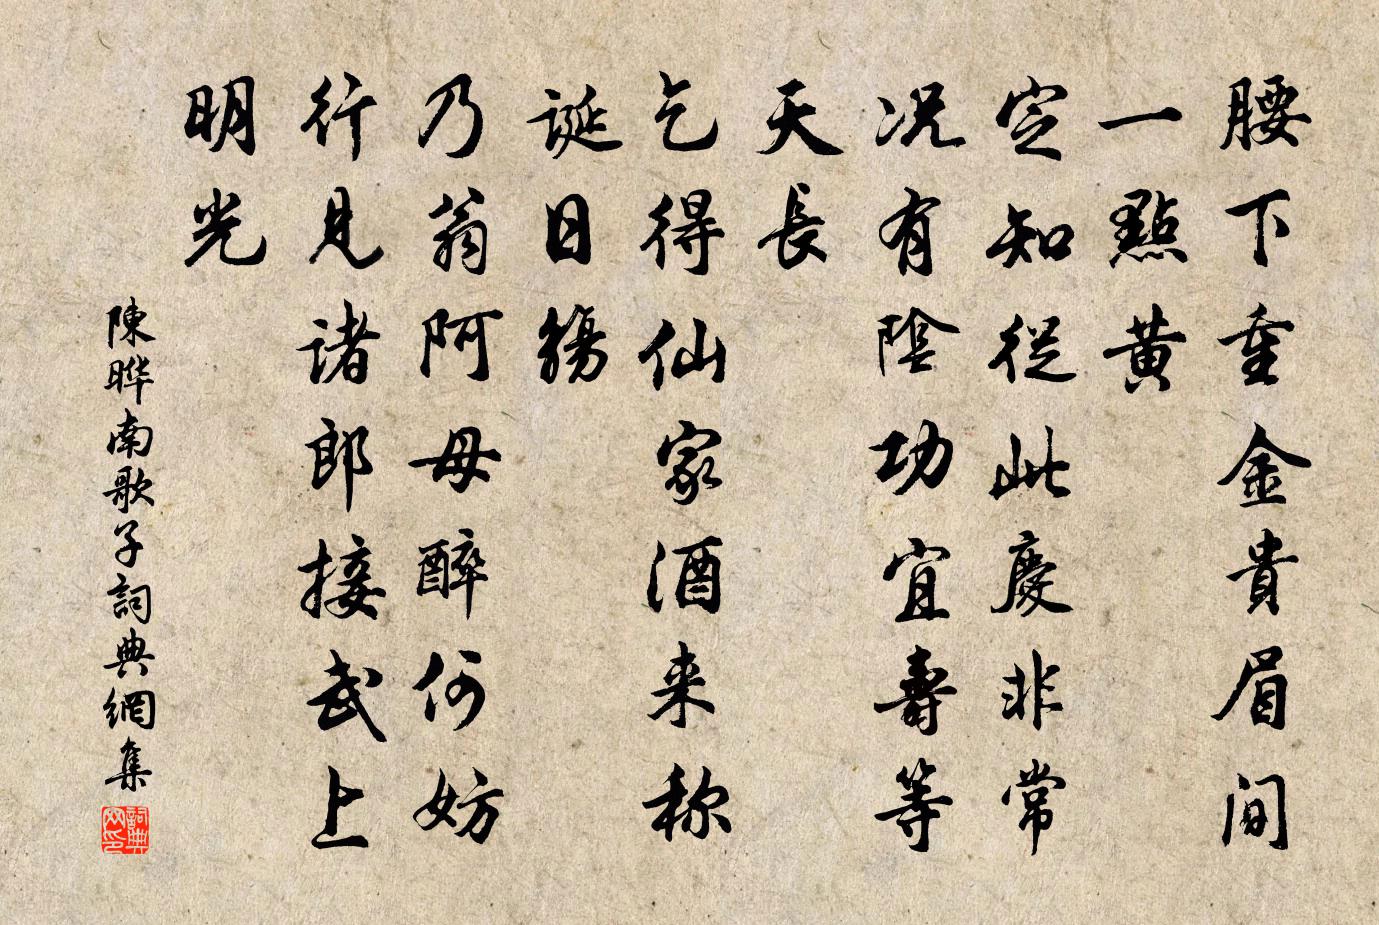 腰下重金貴眉間
一點黃
定知從此慶非常
况有陰功宜壽等
天長
乞得仙家酒来称
誕日觴
乃翁阿母醉何妨
行見诸郎接武上
明光
陳晔南歌子詞典網集
詞典網印